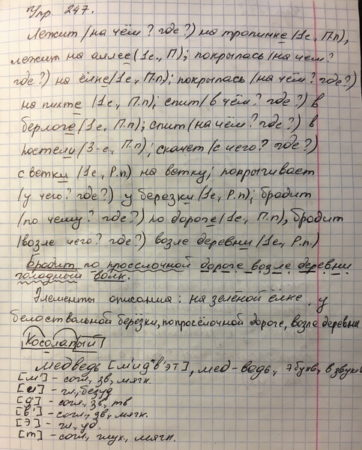 п/пр 247.
Лежит (на чём? где?) на тропинке (1с, П.п),
лежит на аллее (1с., П); покрылась (на чём?
где?) на ёлке (1с, П.п); покрылась (на чём? где?)
на пихте (1с, П.п), спит (в чём? где?) в
берлоге (1с, П.п); спит (на чём? где?) в
постели (3-с., П.п); скачет (с чего? где?)
с ветки (1с, Р.п) на ветку; попрыгивает
(у чего? где?) у березки (1с, Р.п); бродит
(по чему? где?) по дороге (1с, П.п), бродит
(возле чего? где?) возле деревни (1с, Р.п)
Бродит по просёлочной дороге возле деревни
голодный волк.
Элементы описания: на зелёной ёлке, у
белоствольной березки, по просёлочной дороге, возле деревни
Косолапый
медведь [м'ид'в'эт'], мед-ведь, 7 букв, 6 звуков
[м'] - согл, зв, мягк.
[и] - гл, безуд
[д] - согл, зв, тв
[в'] - согл, зв, мягк.
[э] - гл, уд.
[т] - согл, глух, мягк.